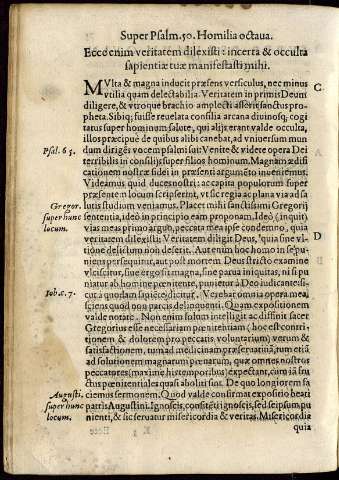 Super Psalm. 50. Homilia octaua.
Ecce enim veritatem dilexisti: incerta & occulta
sapientiæ tuæ manifestasti mihi.
MVlta & magna inducit præsens versiculus, nec minus
C
vtilia quam delectabilia. Veritatem in primis Deum
diligere, & vtroque brachio amplecti asserit sanctus pro-
pheta. Sibiq; fuisse reuelata consilia arcana diuinosq; cogi
tatus super hominum salute, qui alij erant valde occulta,
illos præcipuè de quibus alibi canebat, ad vniuersum mun
Psal. 65.
dum dirigés vocem psalmi sui: Venite & videte opera Dei
terribilis in consilijs super filios hominum. Magnam ædifi
cationem nostræ fidei in præsenti argumẽto inueniemus.
Videamus quid duces nostri: ac capita populorum super
præsentem locum scripserint, vt sic regia ac plana via ad sa
Gregor. super hunc locum.
lutis studium veniamus. Placet mihi sanctissimi Gregorij
sententia, ideò in principio eam proponam, Ideò, (inquit)
vias meas primo arguo, peccata mea ipse condemno, quia
veritatem dilexisti: Veritatem diligit Deus, quia sine vl-
D
tione delictum non deserit. Aut enim hoc homo in se pu-
niens persequitur, aut post mortem Deus stricto examine
vlciscitur, siue ergo sit magna, siue parua iniquitas, ni si pu
niatur ab homine pœnitente, punietur à Deo iudicante: si-
Iob. c. 7.
cut à quodam sapiẽte dicitur. Verebar omnia opera mea,
sciens quod non parcis delinquenti. Quam expositionem
valde notate. Non enim solum intelligit ac diffinit sacer
Gregorius esse necessariam pœnitentiam (hoc est contri
tionem & dolorem pro peccatis voluntarium) verum &
satisfactionem, tum ad medicinam præseruatiuã, tum etiã
ad solutionem magnarum pœnarum, quæ omnes nostros
peccatores (maximè his temporibus) expectant, cum iã fru
ctus pœnitentiales quasi aboliti sint. De quo longiorem fa
Augusti. super hunc locum.
ciemus sermonem. Quod valde confirmat expositio beati
patris Augustini. Ignoscis, consitẽti ignoscis, sed seipsum pu
nienti, & sic seruatur misericordia & veritas. Misericordia
quia